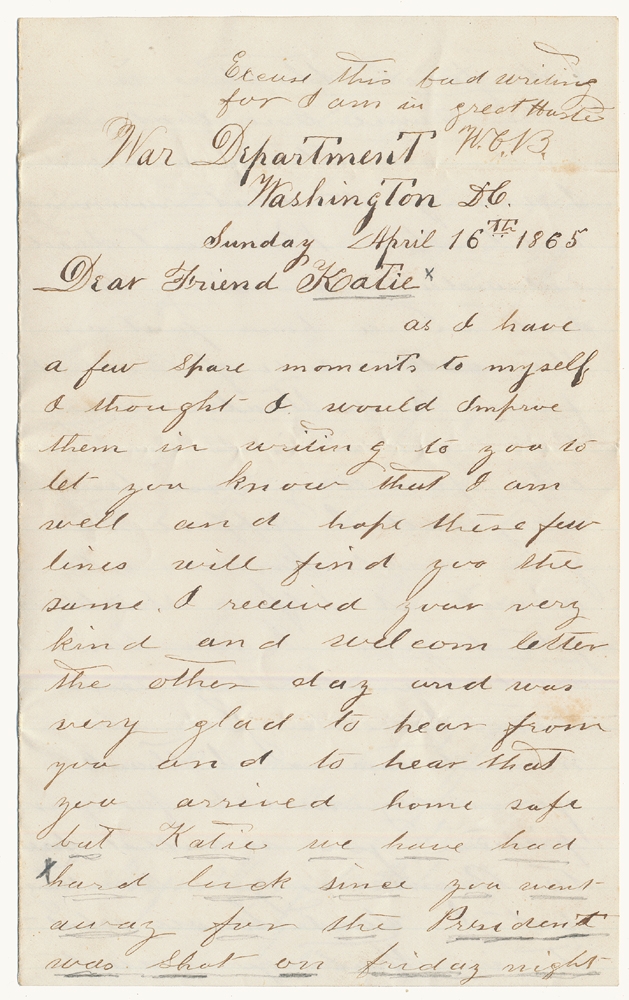 Excuse this bad writing
for I am in great Haste
W.C.B.
War Department
Washington D.C.
Sunday April 16th 1865
Dear Friend Katie x
as I have
a few spare moments to myself
I thought I would Improve
them in writing to you to
let you know that I am
well and hope these few
lines will find you the
same. I received your very
kind and welcom letter
the other day and was
very glad to hear from
you and to hear that
you arrived home safe
but Katie we have had
x hard luck since you went
away for the President
was shot on friday night